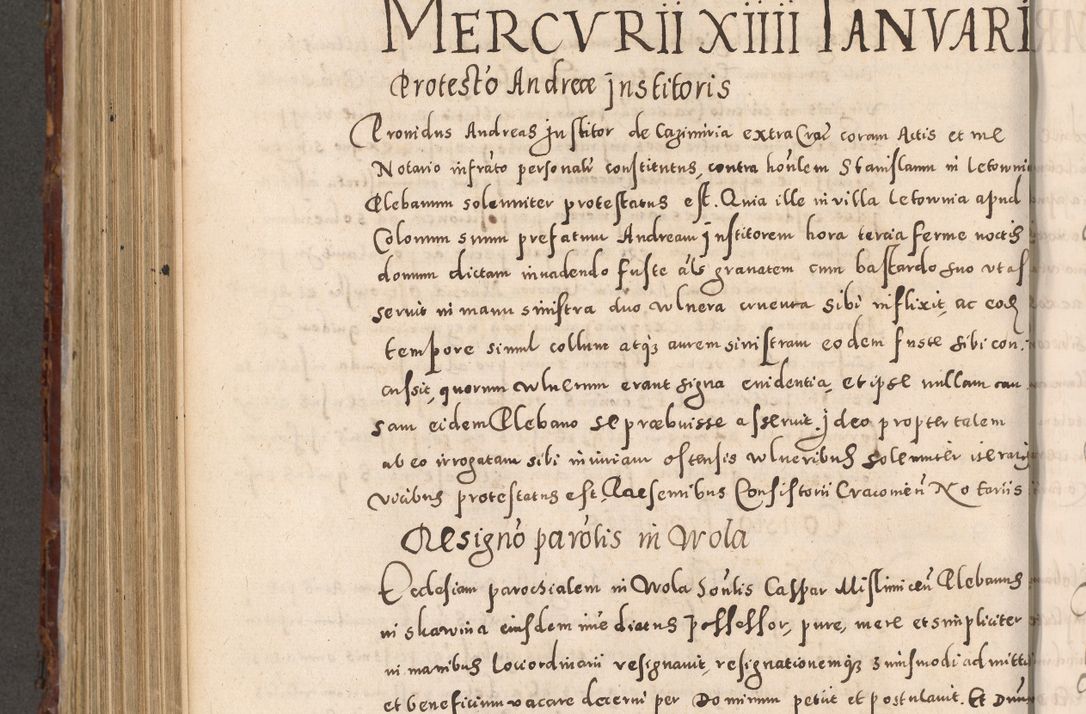 MERCVRII XIIII IANVARI
Protesto Andreæ jnstitoris
Prouidus Andreas jnstitor de Cazimiria extra Crac coram Actis et me
Notario infrato personalr constitutus, contra honlem Stanislaum in Letowni
Plebanum solemniter protestatus est. Quia ille in villa Letownia apud
Colonum suum prefatum Andream jnstitorem hora tercia ferme noctis
domum dictam inuadendo fuste als granatem cum bastardo suo vt as
seruit in manu sinistra duo wlnera cruenta sibi inflixit, ac eod
tempore simul collum atqz aurem sinistram eodem fuste sibi con.
cussit, quorum wlnerum erant signa euidentia, et ipse nullam cau
sam eidem Plebano se præbuisse asseruit. jdeo propter talem
ab eo irrogatam sibi iniuriam ostensis wlneribus solemniter iterati
vicibus protestatus est, Præsentibus Consistorii Cracouien Notariis
Resigno parolis in Wola
Ecclesiam parochialem in Wola honlis Caspar Mislimicen Plebanus
in skawina eiusdem imediatus possessor, pure, mere et simpliciter
in manibus loci ordinarii resignauit, resignationemqz huiusmodi admitti
et beneficium vacare decerni per Dominum petiit et postulauit. Et Dnus